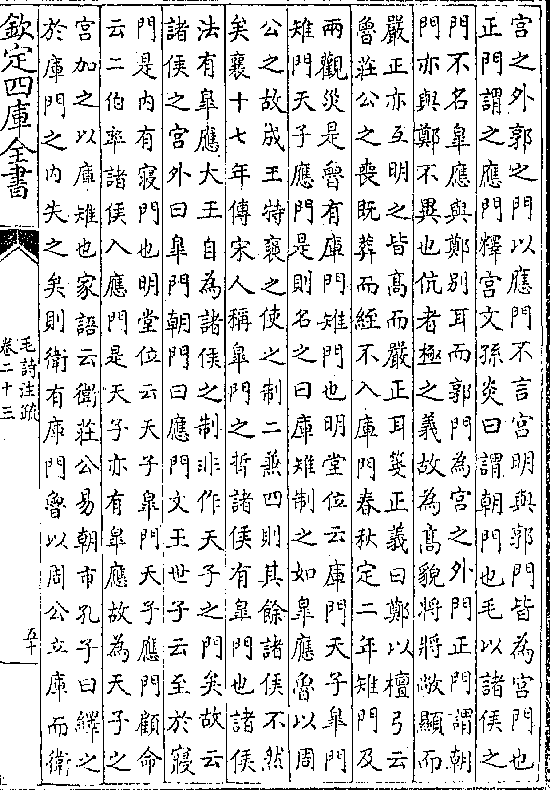 宫之外郭之門以應門不言宫明與郭門皆為宫門也
正門謂之應門釋宫文孫炎曰謂朝門也毛以諸侯之
門不名臯應與鄭别耳而郭門為宫之外門正門謂朝
門亦與鄭不異也伉者極之義故為髙貌將將敞顯而
嚴正亦互明之皆髙而嚴正耳箋正義曰鄭以檀弓云
魯莊公之喪既葬而絰不入庫門春秋定二年雉門及
兩觀災是魯有庫門雉門也明堂位云庫門天子臯門
雉門天子應門是則名之曰庫雉制之如臯應魯以周
公之故成王特襃之使之制二兼四則其餘諸侯不然
矣襄十七年傳宋人稱臯門之晢諸侯有臯門也諸侯
法有臯應大王自為諸侯之制非作天子之門矣故云
諸侯之宫外曰臯門朝門曰應門文王世子云至於寢
門是内有寢門也明堂位云天子臯門天子應門顧命
云二伯率諸侯入應門是天子亦有臯應故為天子之
宫加之以庫雉也家語云衞莊公易朝市孔子曰繹之
於庫門之内失之矣則衞有庫門魯以周公立庫而衞
欽定四庫全書
毛詩注疏
卷二十三
五十